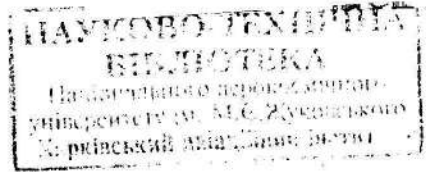 НАУКОВО-ТЕХНІЧНА
БІБЛІОТЕКА
Національного аерокосмічного
університету ім. М.Є. Жуковського
Харківський авіаційний інститут